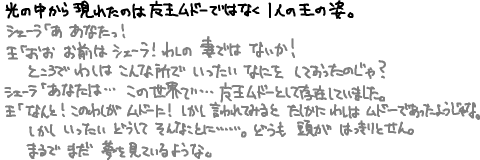 光の中から現れたのは魔王ムドーではなく1人の王の姿。
シェーラ「あ あなたっ!
王「おお お前は シェーラ! わしの 妻では ないか!
ところで わしは こんな所で いったい なにを しておったのじゃ?
シェーラ「あなたは… この世界で… 魔王ムドーとして存在していました。
王「なんと! このわしが ムドーに! しかし 言われてみると たしかに わしは ムドーであったようじゃな。
しかし いったい どうして そんなことに……。どうも 頭が はっきりとせん。
まるで まだ 夢を見ているような。